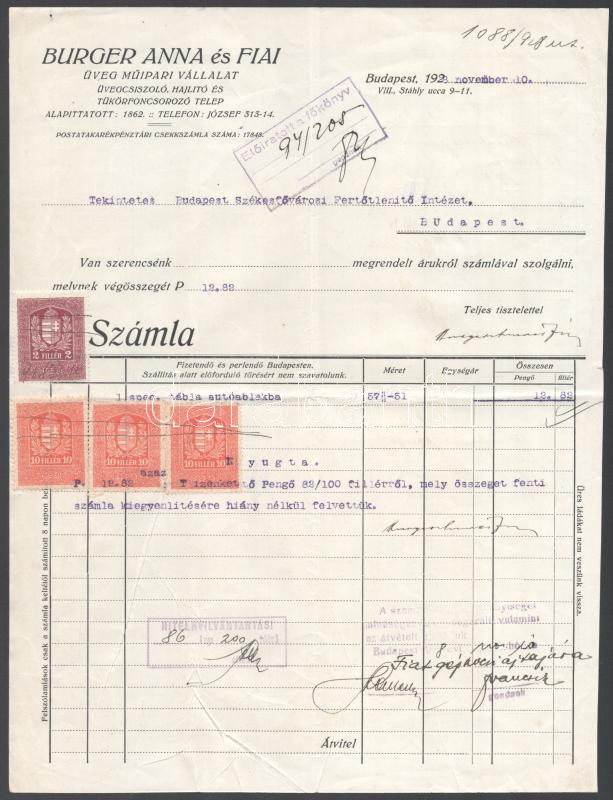 1088/928
BURGER ANNA és FIAI
ÜVEG MŰIPARI VÁLLALAT
ÜVEGCSISZOLÓ, HAJLITÓ ÉS
TÜKÖRFONCSOROZÓ TELEP
ALAPITTATOTT: 1862. :: TELEFON: JÓZSEF 313-14.
POSTATAKARÉKPÉNZTÁRI CSEKKSZÁMLA SZÁMA: 17848.
Budapest, 1928 november 10.
VIII., Stáhly ucca 9-11.
Előiratott a főkönyv
94/205
Tekintetes Budapest Székesfővárosi Fertőtlenitő Intézet,
BUdapest.
Van szerencsénk megrendelt árukról számlával szolgálni,
melynek végösszegét P 12.82
Teljes tisztelettel
2 FILLÉR 2
Számla
Fizetendő és perlendő Budapesten.
Szállitás alatt előforduló törésért nem szavatolunk.
Méret
Egységár
Összesen
Pengő
fillér
tábla autóablakba
57 -51
12.82
10 FILLÉR 10
10 FILLÉR 10
10 FILLÉR 10
Nyugta.
azaz
P. 12.82 Tizenkettő Pengő 82/100 fillérről, mely összeget fenti
számla kiegyenlitésére hiány nélkül felvettük.
Felszólamlások csak a számla keltétől számított 8 napon
Üres ládákat nem veszünk vissza.
HITELNYILVÁNTARTÁSI
86 lap 200 tétel
A
valamint
az átvételt
Budapest 8
Fiat
gondnok
Átvitel